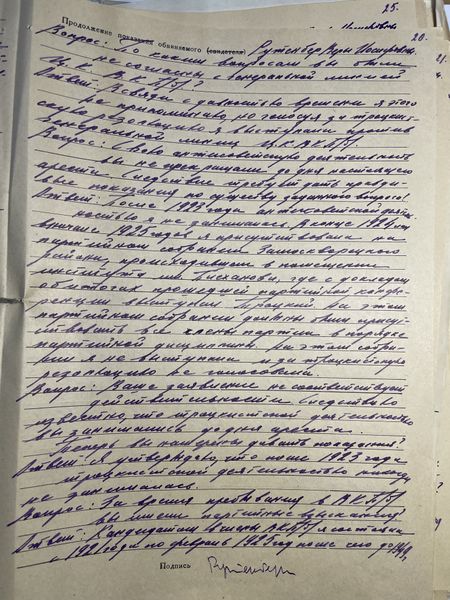 25.
20.
Продолжение показания обвиняемого (свидетеля) Рутенберг Иды Иосифовны
Вопрос: По каким вопросам вы были
не согласны с генеральной линией
Ц.К. В.К.П./б/?
Ответ: В связи с давностью времени я этого
не припоминаю, но голосуя за троцкист-
скую резолюцию я выступала против
генеральной линии Ц.К. ВКП/б/.
Вопрос: Свою антисоветскую деятельность
вы не прекращали до дня настоящего
ареста. Следствие требует дать правди-
вые показания по существу заданного вопроса!
Ответ: После 1923 года антисоветской деятель-
ностью я не занималась. В конце 1924 или
в начале 1925 года я присутствовала на
партийном собрании Замоскворецкого
района, происходившем в помещении
института им. Плеханова, где с докладом
об итогах прошедшей партийной конфе-
ренции выступал Троцкий. На этом
партийном собрании должны были присут-
ствовать все члены партии в порядке
партийной дисциплины. На этом собра-
нии я не выступала и за троцкистскую
резолюцию не голосовала.
Вопрос: Ваше заявление не соответствует
действительности. Следствию
известно, что троцкистской деятельностью
вы занимались до дня ареста.
Теперь вы намерены давать показания?
Ответ: Я утверждаю, что после 1923 года
троцкистской деятельностью никогда
не занималась.
Вопрос: За время пребывания в В.К.П./б/
вы имели партийные взыскания?
Ответ: Кандидатом в члены ВКП/б/ я состояла
с 1921 года по февраль 1925 года после чего до 1949
Подпись Рутенберг